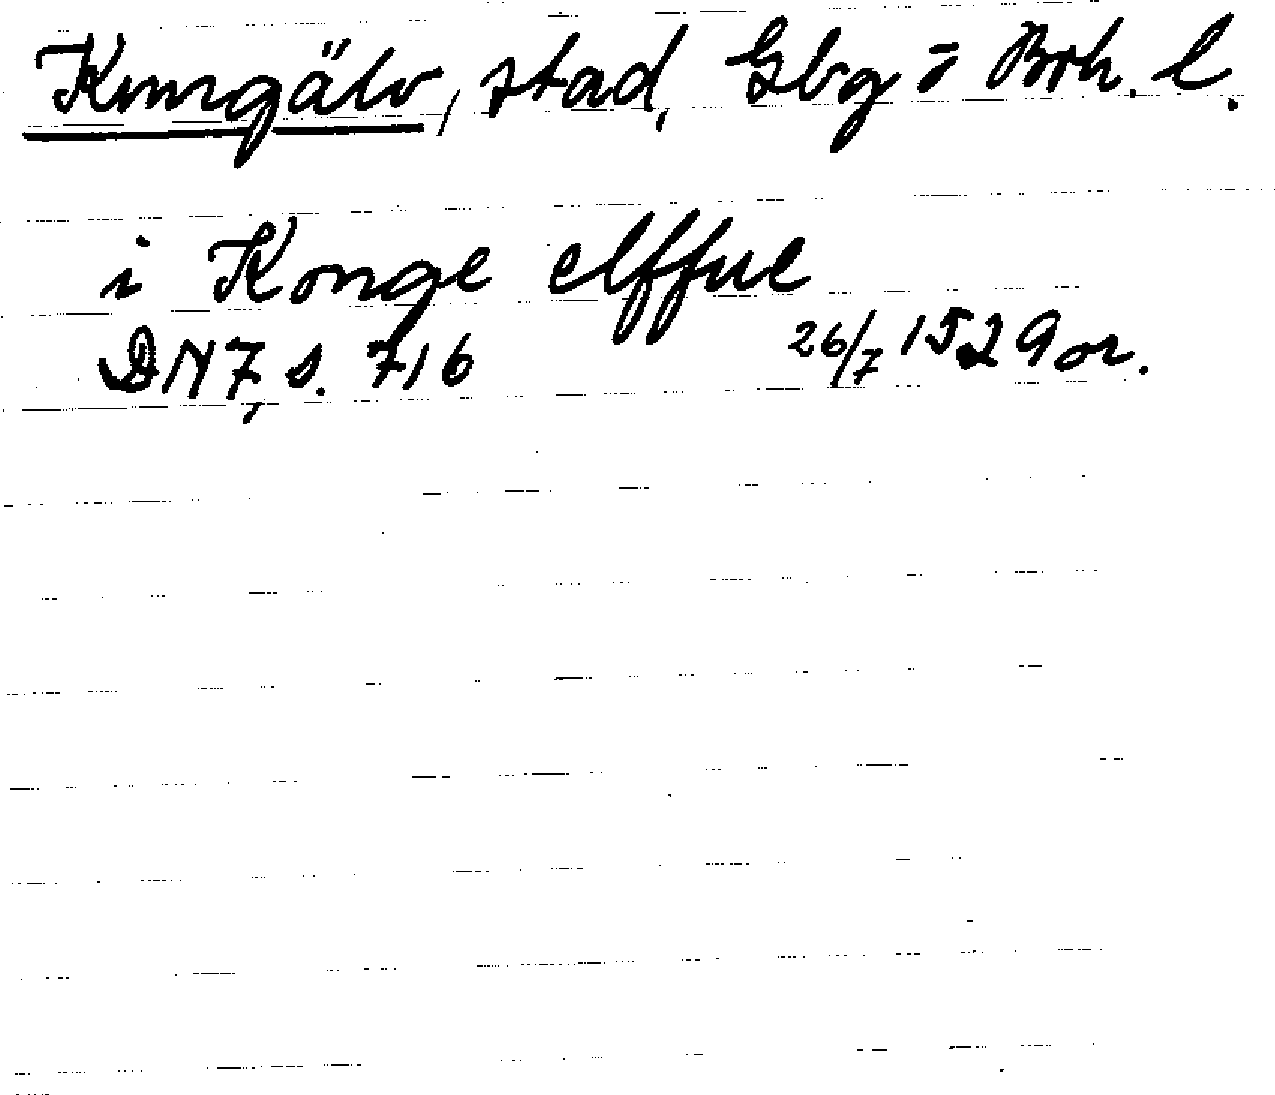 Kungälv, stad, Gbg o Boh. l.
i Konge elffue
DN 7, s. 716 26/7 1529 or.